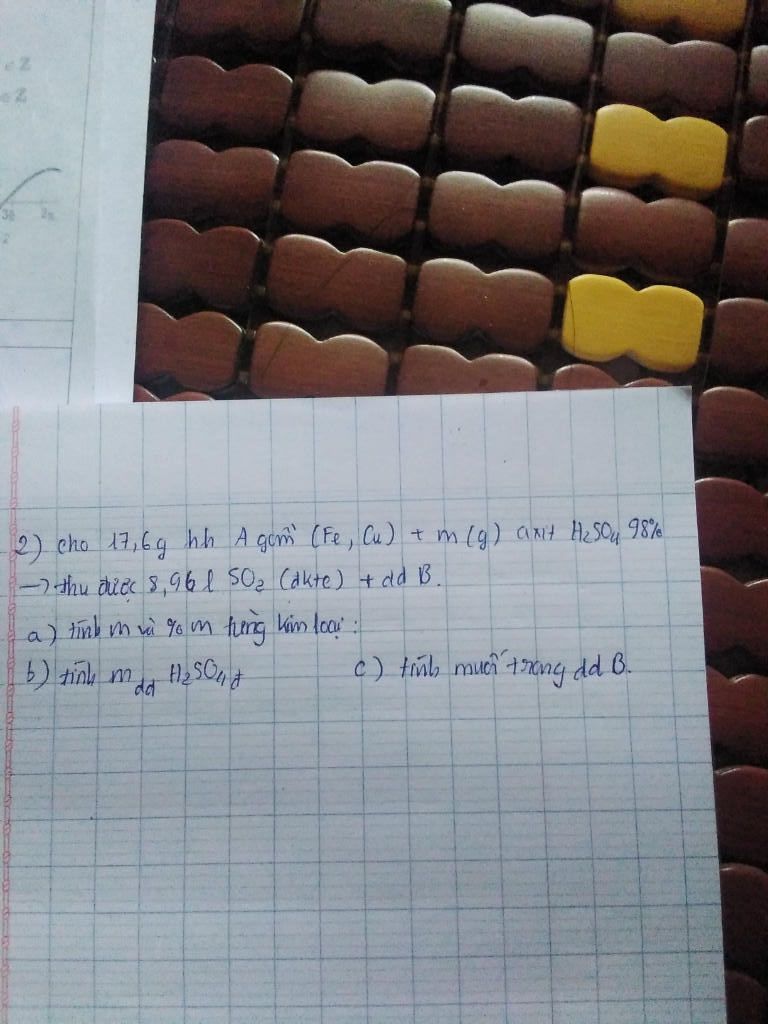 ∈ Z
∈ Z
2π
2
2) cho 17,6g hh A gồm (Fe, Cu) + m (g) axit H₂SO₄ 98%
→ thu được 8,96 l SO₂ (đktc) + dd B.
a) tính m và % m từng kim loại:
b) tính m dd H₂SO₄ đ c) tính muối trong dd B.